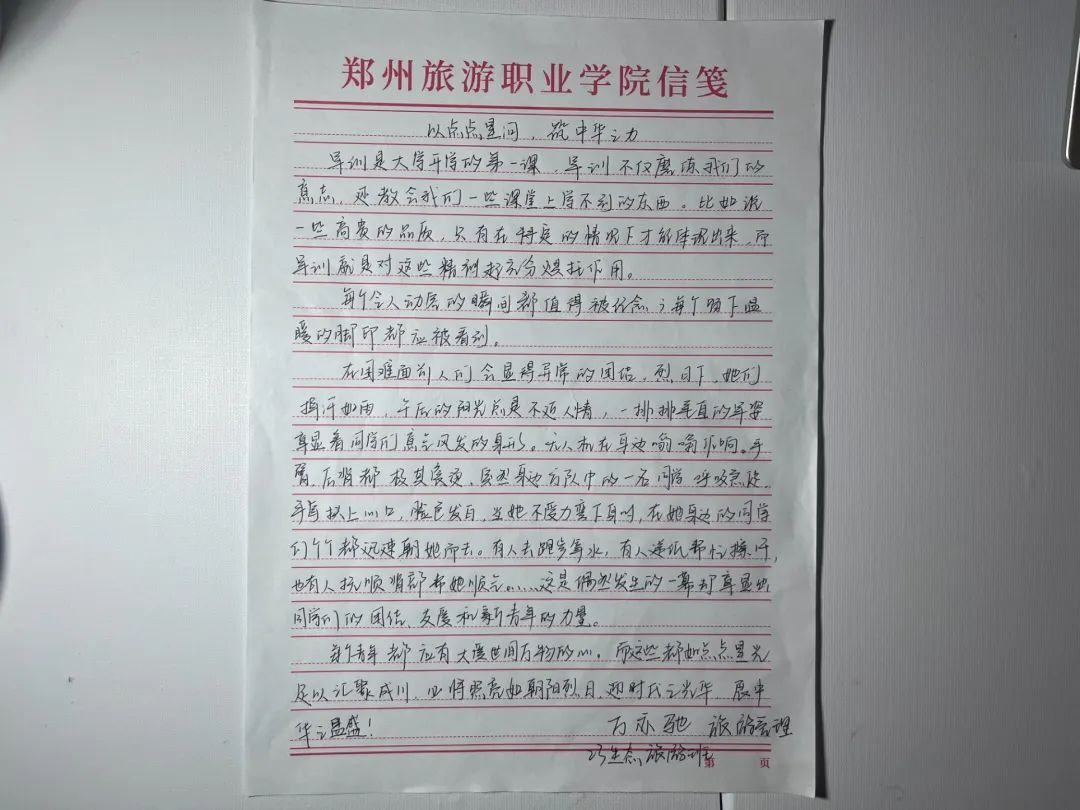 郑州旅游职业学院信笺
以点点星闪，筑中华之力
军训是大学开学的第一课，军训不仅磨练我们的
意志，还教会我们一些课堂上学不到的东西。比如说
一些高贵的品质，只有在特定的情况下才能体现出来，而
军训就是对这些精神起充分烘托作用。
每个令人动容的瞬间都值得被纪念；每个留下温
暖的脚印都应被看到。
在困难面前人们会显得异常的团结，烈日下，她们
挥汗如雨，午后的阳光总是不近人情，一排排垂直的军姿
章显着同学们意气风发的身形。无人机在耳边嗡嗡作响。手
臂、后背都极其滚烫，突然身边方队中的一名同学呼吸急促，
手每扶上心口，脸色发白，当她不受力弯下身时，在她身边的同学
们个个都迅速朝她而去。有人去跑步拿水，有人递纸帮忙擦汗，
也有人抚顺背部帮她顺气……这是偶然发生的一幕却章显出
同学们的团结、友爱和新青年的力量。
每个青年都应有大爱世间万物的心，而这些都如点点星光
足以汇聚成川，必将照亮如朝阳烈日，迎时代之光华，展中
华之昌盛！
万亦驰 旅游管理
23生态旅游班
第 页